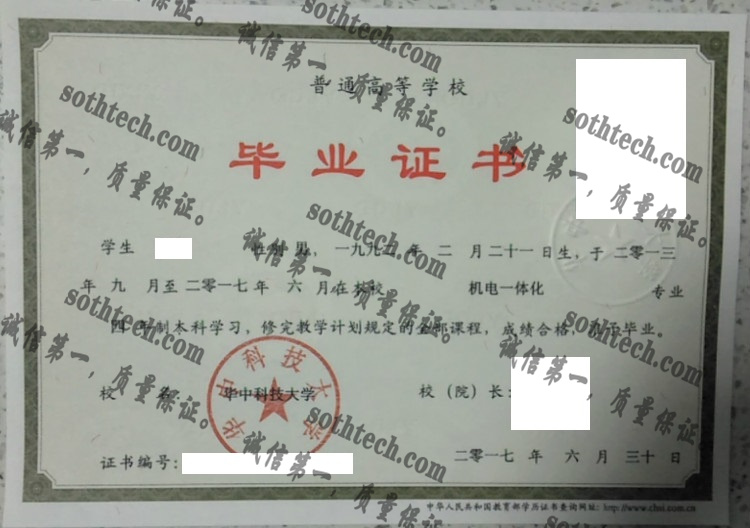 普通高等学校
毕业证书
学生 性别 男，一九九五年 二 月 二十一 日生，于 二〇一三
年 九 月至 二〇一七 年 六 月在本校 机电一体化 专业
四 年制本科学习，修完教学计划规定的全部课程，成绩合格，准予毕业。
校 名 华中科技大学
校（院）长：
华中科技大学
证书编号：
二〇一七 年 六 月 三十 日
中华人民共和国教育部学历证书查询网址：http://www.chsi.com.cn
sothtech.com
诚信第一，质量保证。
sothtech.com
诚信第一，质量保证。
sothtech.com
诚信第一，质量保证。
sothtech.com
诚信第一，质量保证。
sothtech.com
诚信第一，质量保证。
sothtech.com
诚信第一，质量保证。
sothtech.com
诚信第一，质量保证。